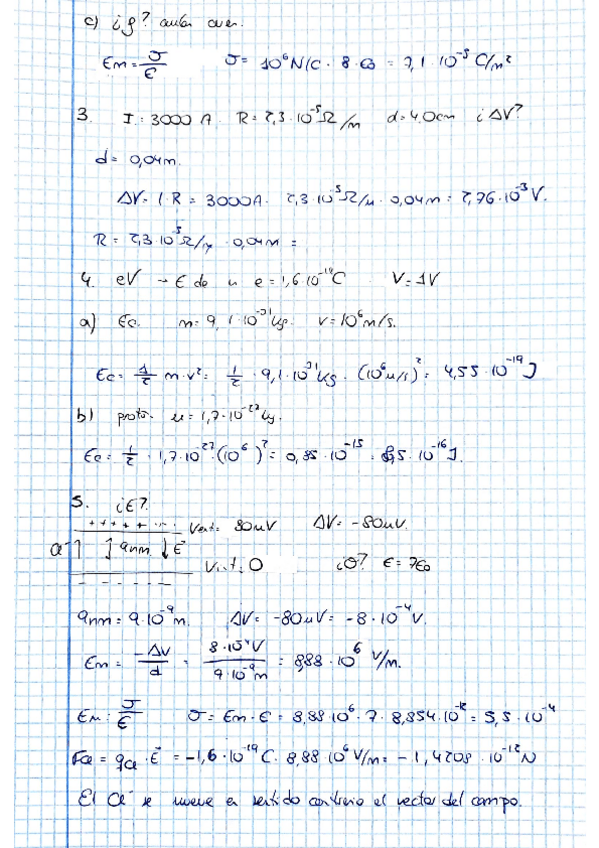 c) ¿g? aular aver.
Em = σ/ε σ = 10⁶ N/C · 8 · ε0 = 7,1 · 10⁻⁵ C/m²
3. I: 3000 A R = 2,3 · 10⁻⁵ Ω/m d = 4,0cm ¿ΔV?
d = 0,04m.
ΔV = I · R = 3000A · 2,3 · 10⁻⁵ Ω/m · 0,04m = 2,76 · 10⁻³ V.
R = 2,3 · 10⁻⁵ Ω/m · 0,04m =
4. eV → E de e = 1,6 · 10⁻¹⁹ C V = 1V
a) Ec. m = 9,1 · 10⁻³¹ kg. v = 10⁶ m/s.
Ec = 1/2 m · v² = 1/2 · 9,1 · 10⁻³¹ kg · (10⁶ m/s)² = 4,55 · 10⁻¹⁹ J
b) proto. m = 1,7 · 10⁻²⁷ kg.
Ec = 1/2 · 1,7 · 10⁻²⁷ · (10⁶)² = 0,85 · 10⁻¹⁵ = 8,5 · 10⁻¹⁶ J.
5. ¿E?
+ + + + + ... Vext = 80mV ΔV = -80mV.
a ↑ ↑ 9nm. ↓ E⃗
Vint = 0 ¿σ? ε = 7ε0
- - - - -
9nm = 9 · 10⁻⁹ m. ΔV = -80mV = -8 · 10⁻⁴ V.
Em = -ΔV/d = 8 · 10⁻⁴ V / 9 · 10⁻⁹ m = 8,88 · 10⁶ V/m.
Em = σ/ε σ = Em · ε = 8,88 · 10⁶ · 7 · 8,854 · 10⁻¹² = 5,5 · 10⁻⁴
Fa = qa · E⃗ = -1,6 · 10⁻¹⁹ C · 8,88 · 10⁶ V/m = -1,4208 · 10⁻¹² N
El Cl⁻ se mueve en sentido contrario al vector del campo.